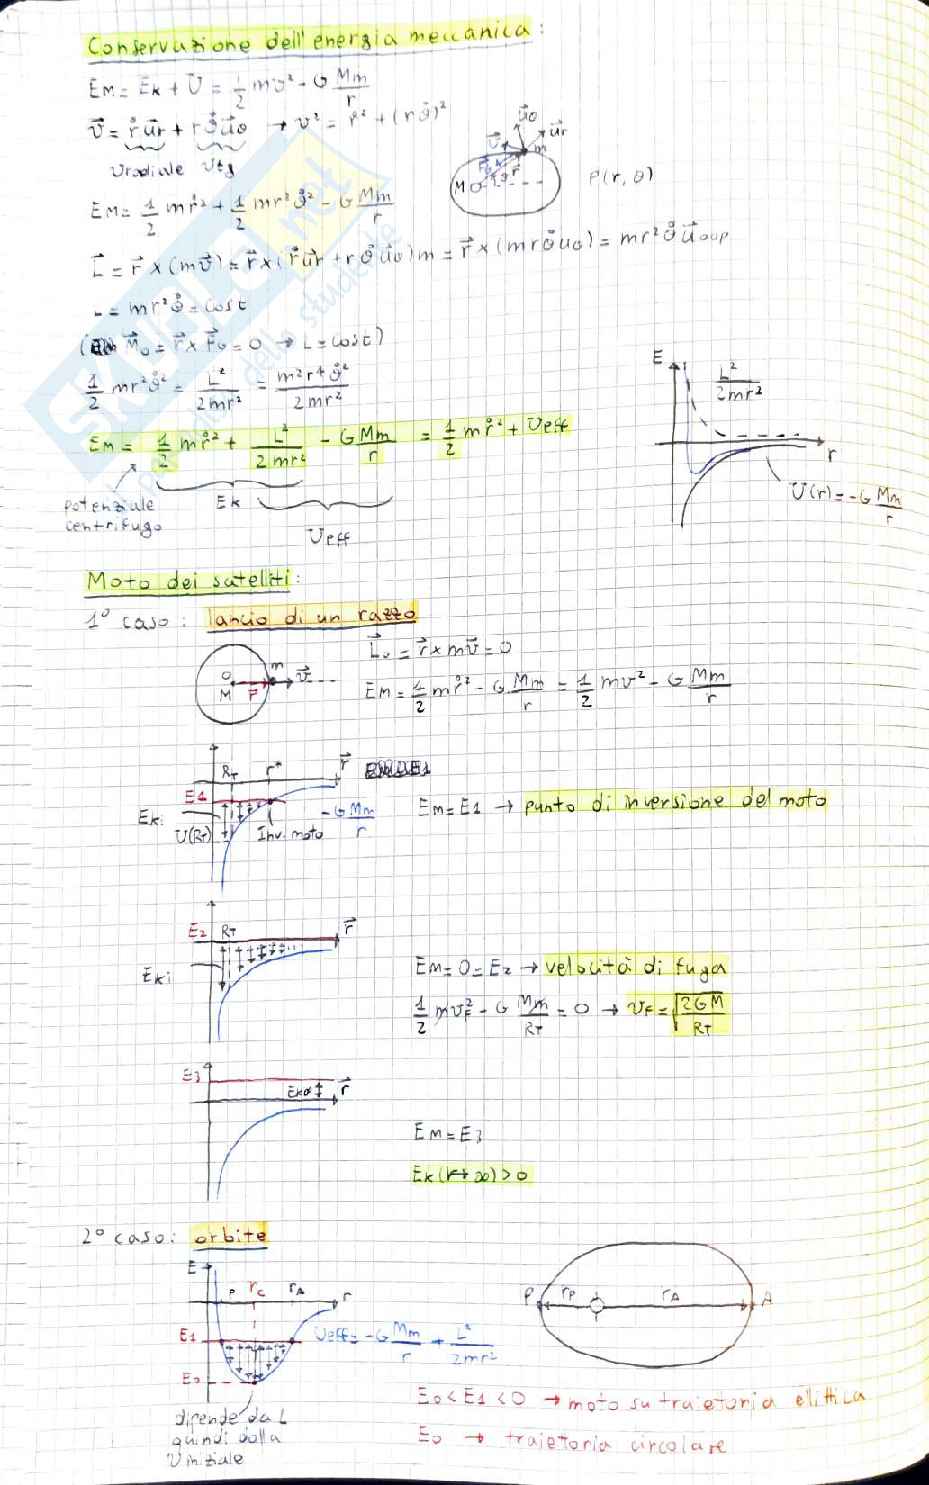 Conservazione dell'energia meccanica:
EM = EK + U = 1/2 mv² - G Mm/r
v⃗ = ṙ u⃗r + r θ̇ u⃗θ → v² = ṙ² + (r θ̇)²
vradiale vtg
u⃗θ
u⃗r
v⃗
m
r⃗
M
P(r, θ)
EM = 1/2 mṙ² + 1/2 mr² θ̇² - G Mm/r
L⃗ = r⃗ × (mv⃗) = r⃗ × (ṙ u⃗r + r θ̇ u⃗θ) m = r⃗ × (mr θ̇ uθ) = mr² θ̇ u⃗
L = mr² θ̇ = cost
M⃗o = r⃗ × F⃗G = 0 → L = cost)
1/2 mr² θ̇² = L²/2mr² = m² r⁴ θ̇²/2mr²
EM = 1/2 mṙ² + L²/2mr² - G Mm/r = 1/2 mṙ² + Ueff
potenziale
centrifugo
EK
Ueff
E
L²/2mr²
r
U(r) = -G Mm/r
Moto dei sateliti:
1° caso: lancio di un razzo
O
M
r⃗
m
v⃗
L⃗o = r⃗ × mv⃗ = 0
EM = 1/2 mṙ² - G Mm/r = 1/2 mv² - G Mm/r
RT
r*
r⃗
E1
EKi
U(RT)
Inv. moto
-G Mm/r
EM = E1 → punto di inversione del moto
E2
RT
r⃗
EKi
EM = 0 = E2 → velocità di fuga
1/2 mvF² - G Mm/RT = 0 → vF = √(2GM/RT)
E3
EK∞
r⃗
EM = E3
EK (r→∞) > 0
2° caso: orbite
E
P
rC
rA
r
E1
E0
Ueff = -G Mm/r + L²/2mr²
dipende da L
quindi dalla
v iniziale
P
rP
rA
A
E0 < E1 < 0 → moto su traietoria elittica
E0 → traietoria circolare
SKUOLA.net